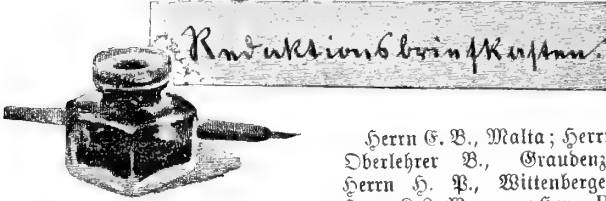 Redaktionsbriefkasten.
Herrn E. B., Malta; Herrn
Oberlehrer B., Graudenz
Herrn H. P., Wittenberge